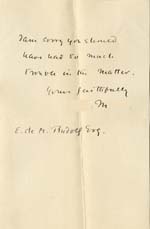 I am sorry you should
have had so much
trouble in this matter.
Yours faithfully
E. de M. Rudolf Esq.